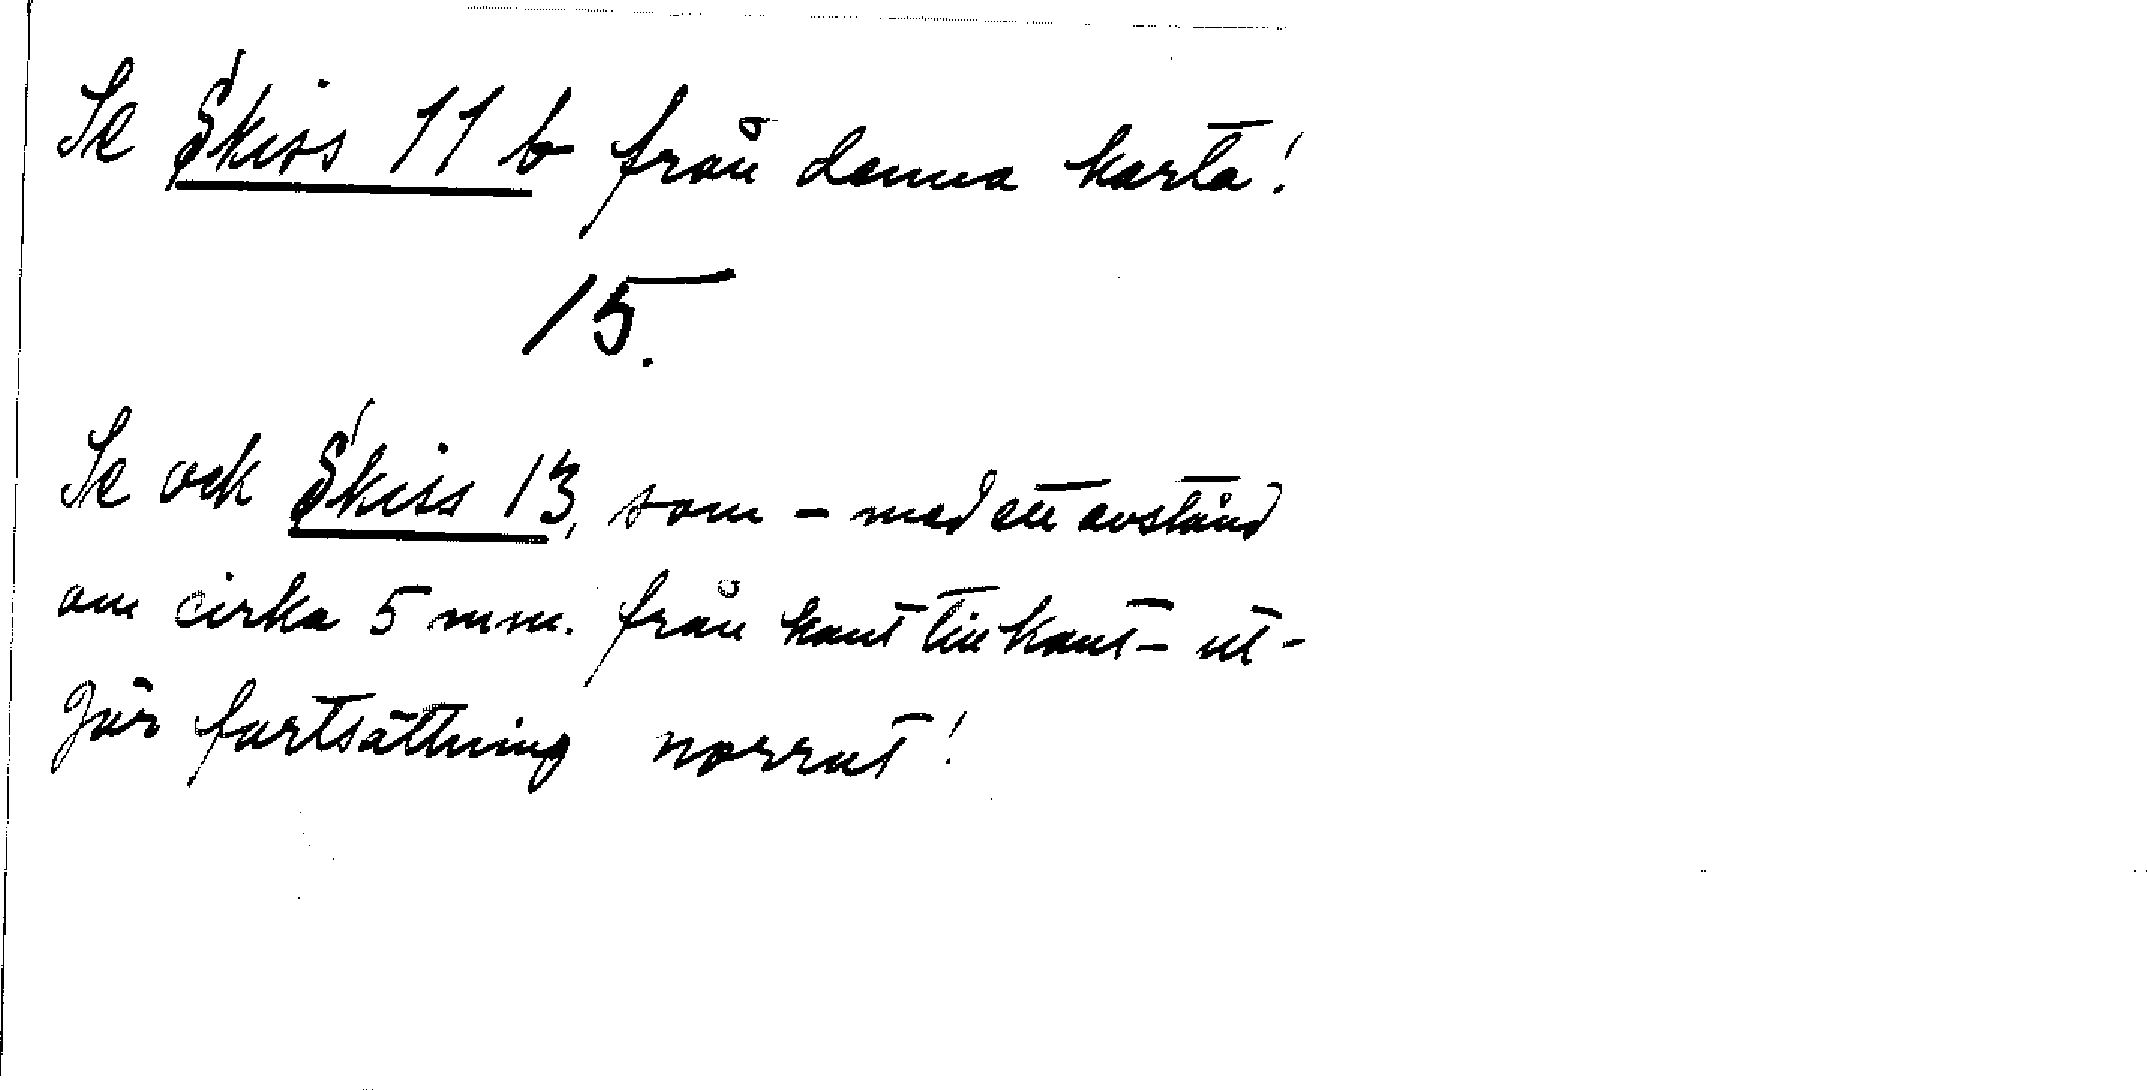 Se Skiss 11 b från denna karta!
15.
Se ock Skiss 13, som – med ett avstånd
om cirka 5 mm. från kant till kant – ut-
gör fortsättning norrut!